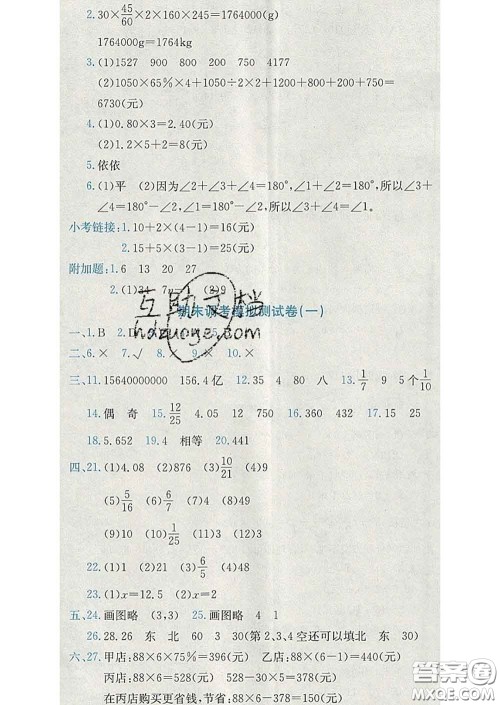 2.30×45/60×2×160×245=1764000(g)
1764000g=1764kg
3.(1)1527 900 800 750 4177
(2)1050×65%×4+1050÷2×2+1200+800+1200+750=
6730(元)
4.(1)0.80×3=2.40(元)
(2)1.2×5+2=8(元)
5.依依
6.(1)平 (2)因为∠2+∠3+∠4=180°,∠1+∠2=180°,所以∠3+
∠4=180°-∠2,∠1=180°-∠2,所以∠3+∠4=∠1。
小考链接:1.10+2×(4-1)=16(元)
2.15+5×(3-1)=25(元)
附加题:1.6 13 20 27
2.(1)34 (2)9
互助文档
hdzuoye.com
期末调考模拟测试卷(一)
一、1.B
二、6.× 7.√ 8.× 9.× 10.×
三、11.15640000000 156.4亿 12.35 4 80 八 13.1/7 9 5个1/10
14.偶 奇 15.12/25 4.05 12 750 16.360 432 17.15 25
18.5.652 19.4 相等 20.441
四、21.(1)4.08 (2)876 (3)10/21 (4)9
(5)5/16 (6)6/7 (7)4 (8)0.027
(9)10 (10)1/25 (11)3 (12)90
22.(1)1 (2)21 (3)6/5 (4)48
23.(1)x=12.5 (2)x=2
五、24.画图略 (3,3) 25.画图略 4 1
26.28.26 东 北 60 3 30(第2、3,4空还可以填北 东 30)
六、27.甲店:88×6×75%=396(元) 乙店:88×(6-1)=440(元)
丙店:88×6-30×5=378(元)
在丙店购买更省钱,节省:88×6-378=150(元)
答案圈
MXQE.COM